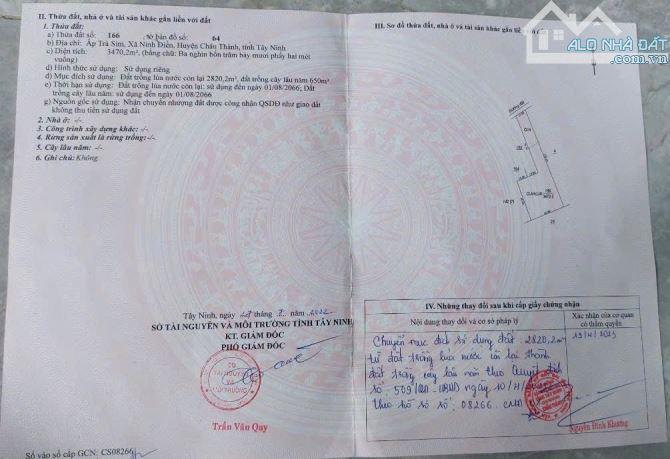 II. Thửa đất, nhà ở và tài sản khác gắn liền với đất
1. Thửa đất:
a) Thửa đất số: 166 , tờ bản đồ số: 64
b) Địa chỉ: Ấp Trà Sim, Xã Ninh Điền, Huyện Châu Thành, tỉnh Tây Ninh
c) Diện tích: 3470,2m², (bằng chữ: Ba nghìn bốn trăm bảy mươi phẩy hai mét vuông)
d) Hình thức sử dụng: Sử dụng riêng
đ) Mục đích sử dụng: Đất trồng lúa nước còn lại 2820,2m², đất trồng cây lâu năm 650m².
e) Thời hạn sử dụng: Đất trồng lúa nước còn lại: sử dụng đến 01/08/2066; Đất
trồng cây lâu năm: sử dụng đến ngày 01/08/2066
g) Nguồn gốc sử dụng: Nhận chuyển nhượng đất được công nhận QSDĐ như giao đất
không thu tiền sử dụng đất
2. Nhà ở: -/-
3. Công trình xây dựng khác: -/-
4. Rừng sản xuất là rừng trồng: -/-
5. Cây lâu năm: -/-
6. Ghi chú: Không
Tây Ninh, ngày tháng năm 2022
SỞ TÀI NGUYÊN VÀ MÔI TRƯỜNG TỈNH TÂY NINH
KT. GIÁM ĐỐC
PHÓ GIÁM ĐỐC
Trần Văn Quy
Số vào sổ cấp GCN: CS08266
III. Sơ đồ thửa đất, nhà ở và tài sản khác gắn liền với
ALO NHÀ ĐẤT
IV. Những thay đổi sau khi cấp giấy chứng nhận
Nội dung thay đổi và cơ sở pháp lý
Xác nhận của cơ quan
có thẩm quyền
Chuyển mục đích sử dụng đất 2820,2m²
từ đất trồng lúa nước còn lại thành
đất trồng cây lâu năm theo Quyết định
số 509/QĐ-UBND ngày 10/4/
theo hồ sơ số: 08266.
Nguyễn Đình Khương